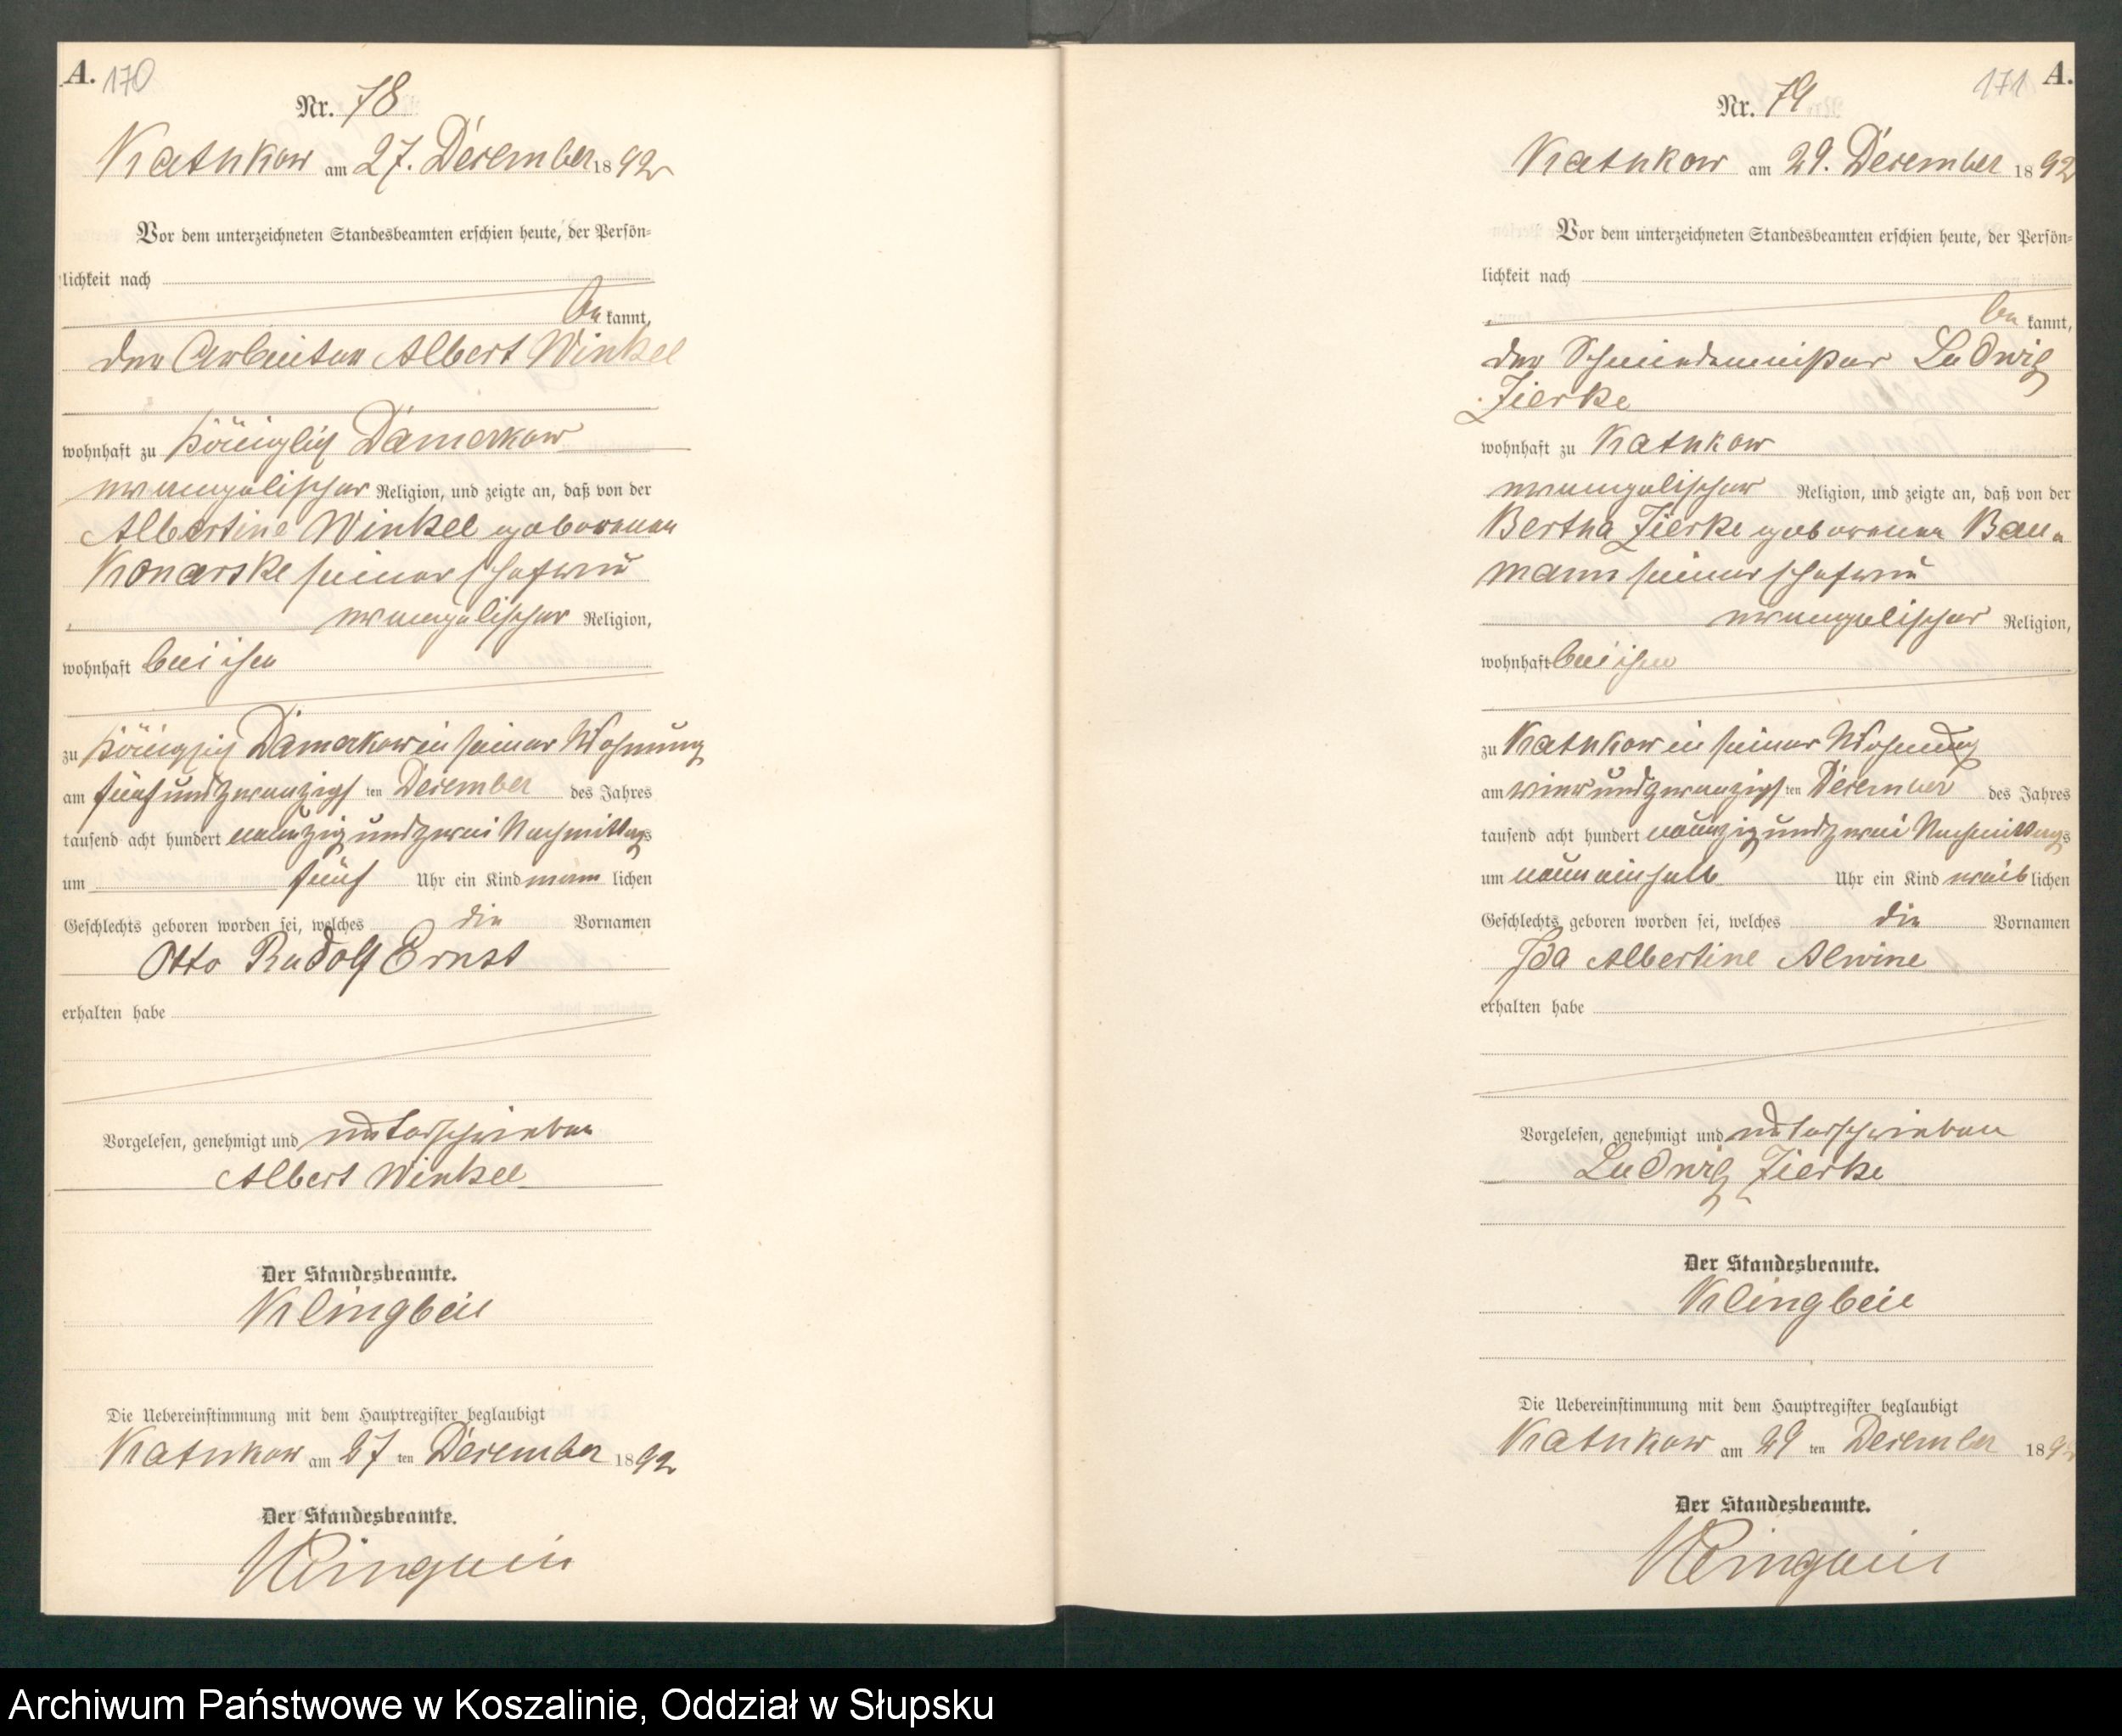 A. 170
Nr. 78
Kathkow am 27. December 1892
Vor dem unterzeichneten Standesbeamten erschien heute, der Persön-
lichkeit nach
bekannt,
der Arbeiter Albert Winkel
wohnhaft zu Königlich Damerkow
evangelischer Religion, und zeigte an, daß von der
Albertine Winkel geborenen
Konarske seiner Ehefrau
evangelischer Religion,
wohnhaft bei ihm
zu Königlich Damerkow in seiner Wohnung
am fünf und zwanzigsten December des Jahres
tausend acht hundert neunzig und zwei Nachmittags
um fünf Uhr ein Kind männlichen
Geschlechts geboren worden sei, welches die Vornamen
Otto Rudolf Ernst
erhalten habe
Vorgelesen, genehmigt und unterschrieben
Albert Winkel
Der Standesbeamte.
Klingbeil
Die Uebereinstimmung mit dem Hauptregister beglaubigt
Kathkow am 27 ten December 1892
Der Standesbeamte.
Klingbeil
171 A.
Nr. 79
Kathkow am 29. December 1892
Vor dem unterzeichneten Standesbeamten erschien heute, der Persön-
lichkeit nach
bekannt,
der Schmiedemeister Ludwig
Zierke
wohnhaft zu Kathkow
evangelischer Religion, und zeigte an, daß von der
Bertha Zierke geborenen Bau-
mann seiner Ehefrau
evangelischer Religion,
wohnhaft bei ihm
zu Kathkow in seiner Wohnung
am vier und zwanzigsten December des Jahres
tausend acht hundert neunzig und zwei Nachmittags
um neuneinhalb Uhr ein Kind weiblichen
Geschlechts geboren worden sei, welches die Vornamen
Ida Albertine Alwine
erhalten habe
Vorgelesen, genehmigt und unterschrieben
Ludwig Zierke
Der Standesbeamte.
Klingbeil
Die Uebereinstimmung mit dem Hauptregister beglaubigt
Kathkow am 29 ten December 1892
Der Standesbeamte.
Klingbeil
Archiwum Państwowe w Koszalinie, Oddział w Słupsku